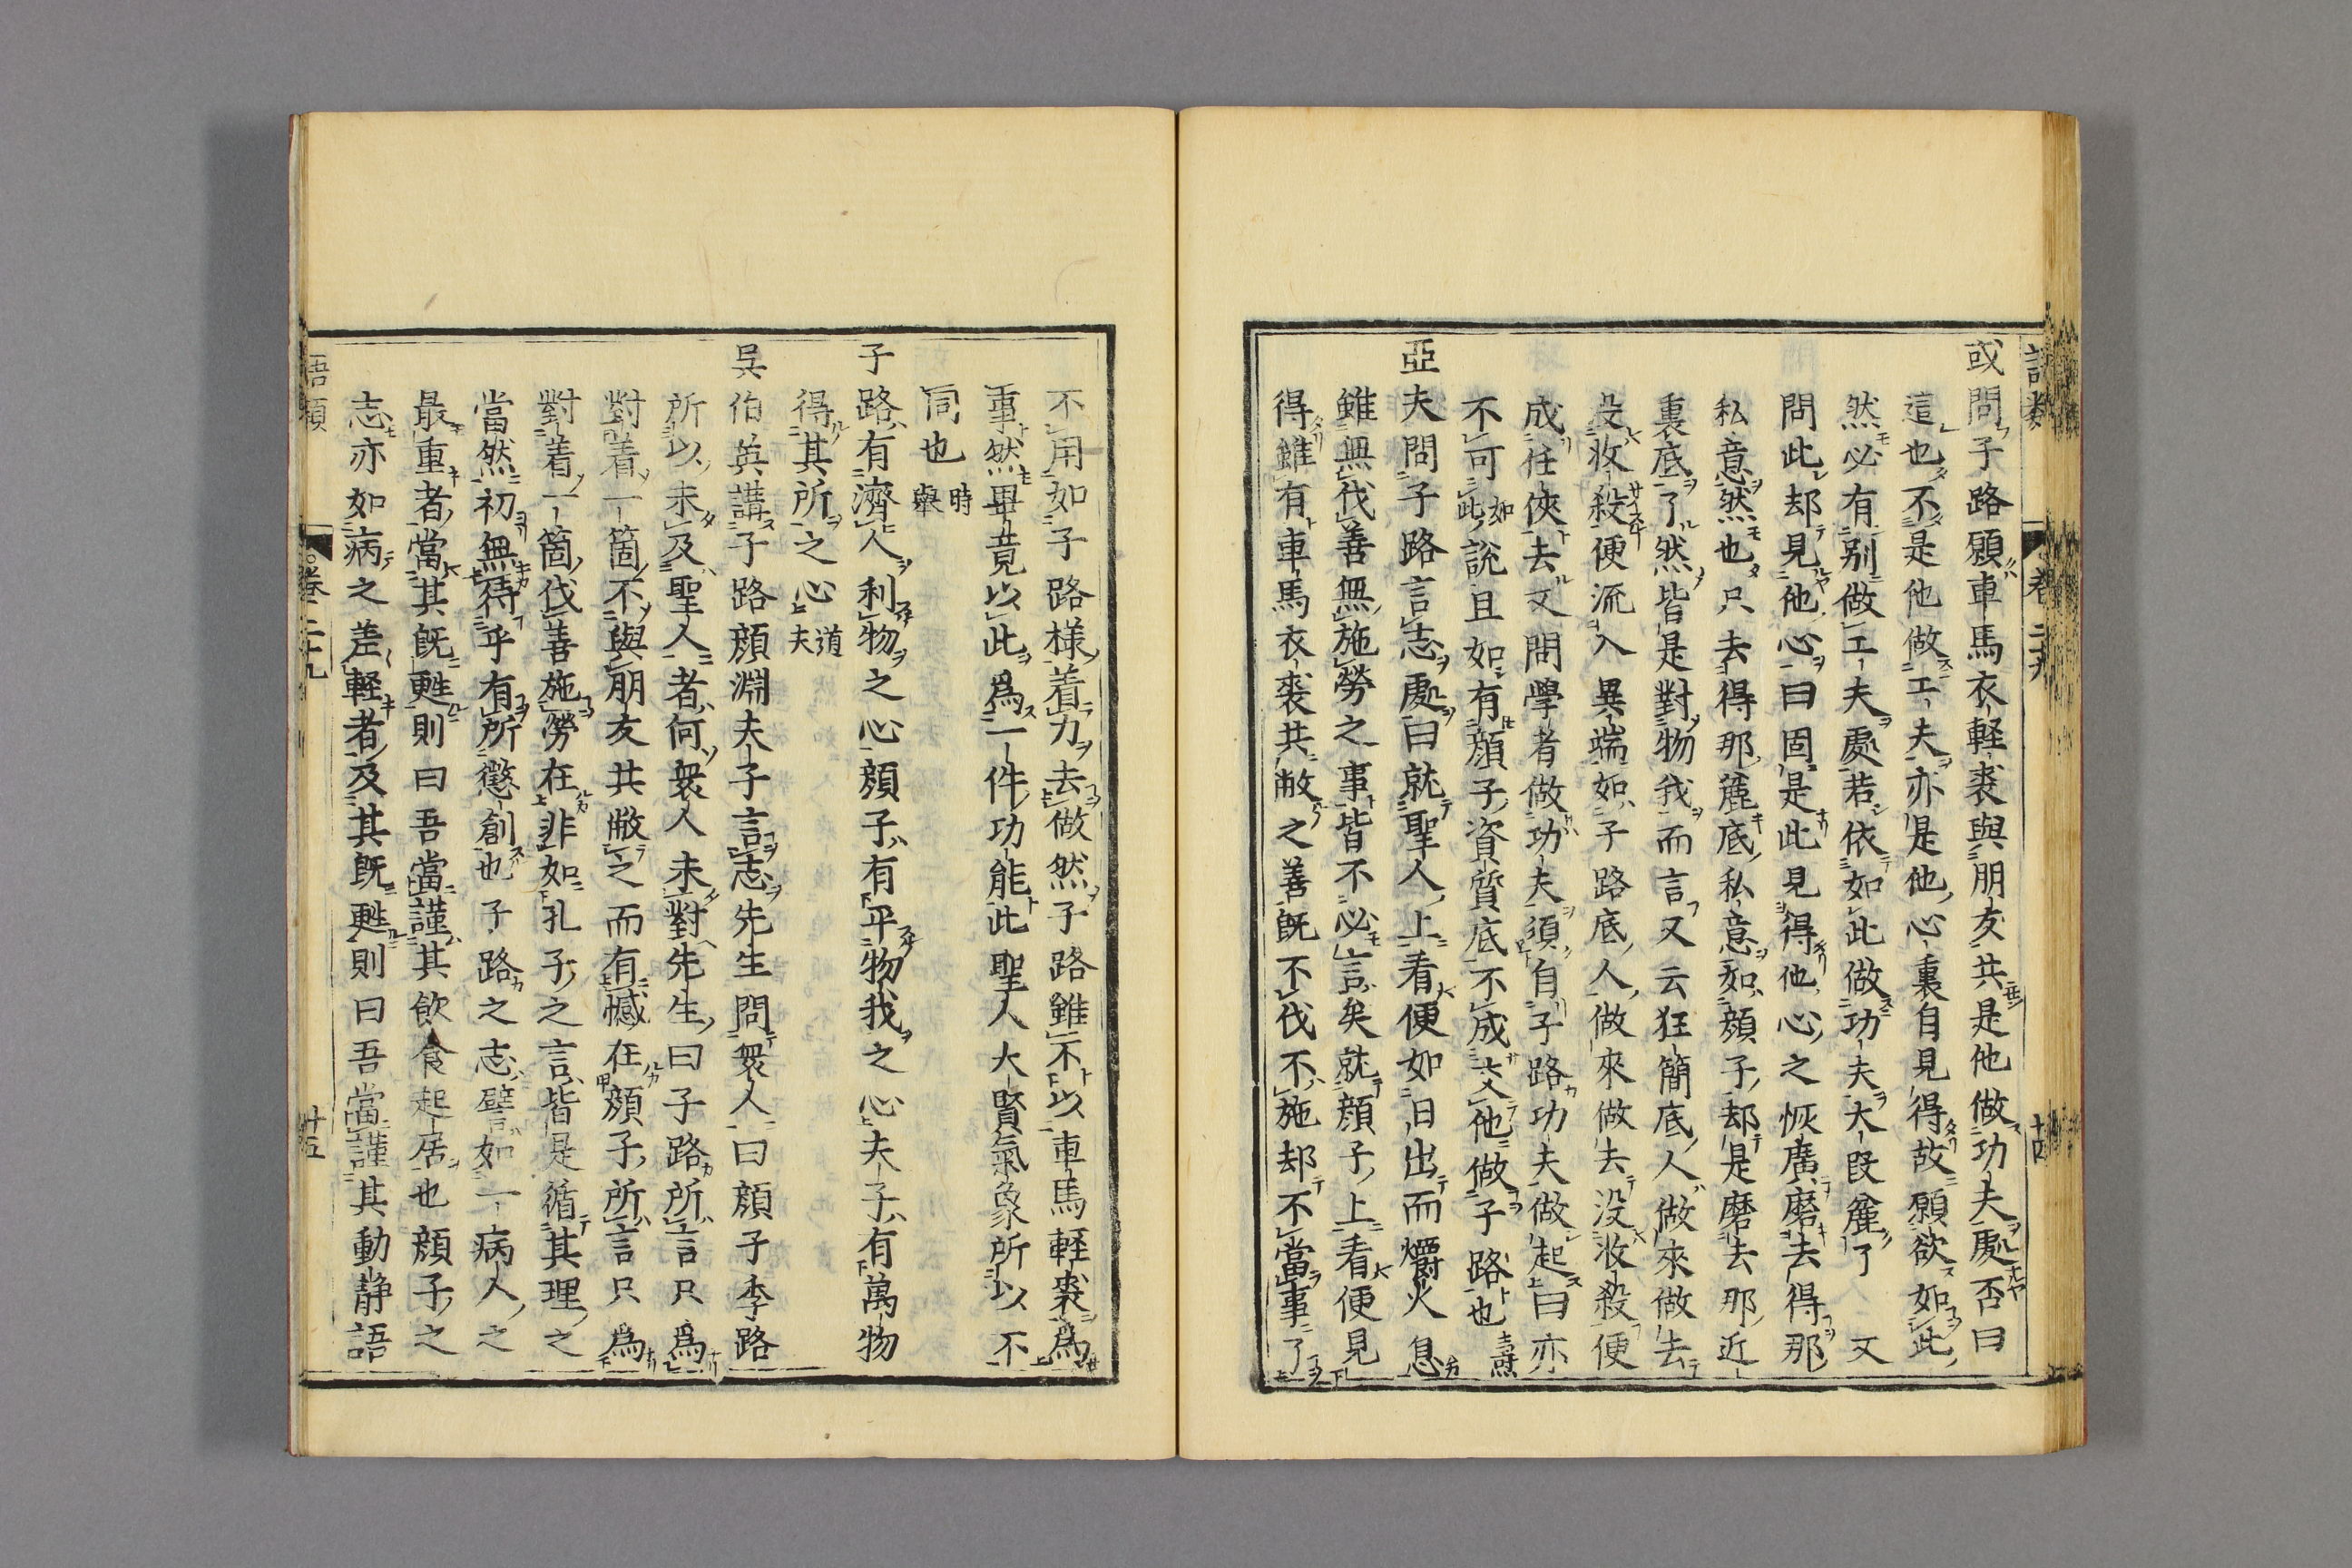 或問子路願車馬衣輕裘與朋友共是他做功夫處否曰
這也不是他做工夫亦是他心裏自見得故願欲如此
然必有別做工夫處若依如此做功夫大段麄了又
問此却見他心曰固是此見得他心之恢廣磨去得那
私意然也只去得那麄底私意如顏子却是磨去那近
裏底了然皆是對物我而言又云狂簡底人做來做去
没收殺便流入異端如子路底人做來做去没收殺便
成任俠去又問學者做功夫須自子路功夫做起曰亦
不可如此說且如有顏子資質底不成交他做子路也 士焘
亞夫問子路言志處曰就聖人上看便如日出而爝火息
雖無伐善無施勞之事皆不必言矣就顏子上看便見
得雖有車馬衣裘共敝之善既不伐不施却不當事了
不用如子路樣着力去做然子路雖不以車馬輕裘爲
事然畢竟以此爲一件功能此聖人大賢氣象所以不
同也 時舉
子路有濟人利物之心顏子有平物我之心夫子有萬物
得其所之心 道夫
吳伯英講子路顏淵夫子言志先生問衆人曰顏子季路
所以未及聖人者何衆人未對先生曰子路所言只爲
對着一箇不與朋友共敝之而有憾在顏子所言只爲
對着一箇伐善施勞在非如孔子之言皆是循其理之
當然初無待乎有所懲創也子路之志譬如一病人之
最重者當其既甦則曰吾當謹其飲食起居也顏子之
志亦如病之差輕者及其既甦則曰吾當謹其動静語
語類
卷二十九
廿五